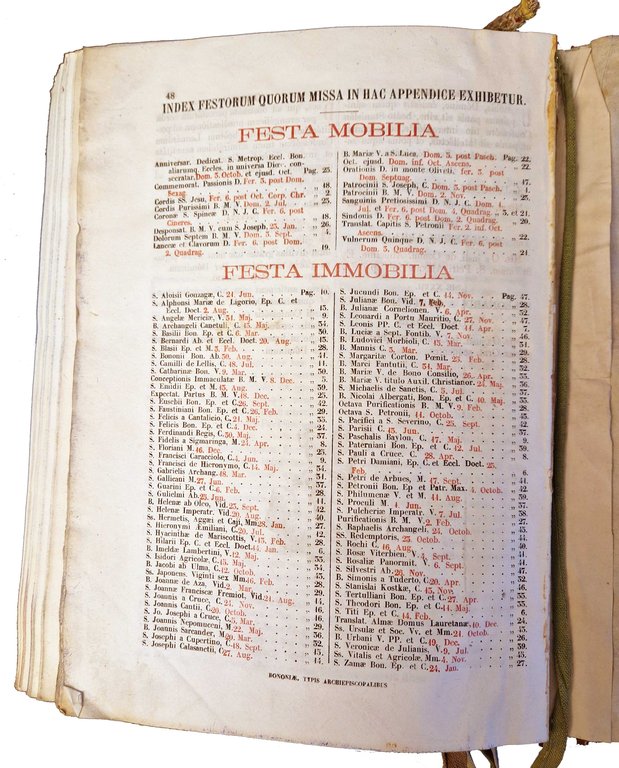 48
INDEX FESTORUM QUORUM MISSA IN HAC APPENDICE EXHIBETUR.
FESTA MOBILIA
Anniversar. Dedicat. S. Metrop. Eccl. Bon-
aliarumq. Eccles. in universa Dioec. con-
secratar. Dom. 3. Octob. et ejusd. Oct. Pag. 25.
Commemorat. Passionis D. Fer. 3. post Dom.
Sexag. „ 48.
Cordis SS. Jesu, Fer. 6. post Oct. Corp. Chr. „ 2.
Cordis Purissimi B. M. V. Dom. 2. Jul. „ 25.
Coronæ S. Spineæ D. N. J. C. Fer. 6. post
Cineres. „ 48.
Desponsat. B. M. V. cum S. Joseph, 23. Jan. „ 26.
Dolorum Septem B. M. V. Dom. 3. Sept. „ 4.
Lanceæ et Clavorum D. Fer. 6. post Dom.
2. Quadrag. „ 19.
B. Mariæ V. a S. Luca, Dom. 5. post Pasch. Pag. 22.
Oct. ejusd. Dom. inf. Oct. Ascens. „ 22.
Orationis D. in monte Oliveti, fer. 3. post
Dom. Septuag. „ 47.
Patrocinii S. Joseph, C. Dom. 3. post Pasch. „ 7.
Patrocinii B. M. V. Dom. 2. Nov. „ 25.
Sanguinis Pretiosissimi D. N. J. C. Dom. 1.
Jul. et Fer. 6. post Dom. 4. Quadrag. „ 3. et 21.
Sindonis D. Fer. 6. post Dom. 2. Quadrag. „ 20.
Translat. Capitis S. Petronii Fer. 2. inf. Oct.
Ascens. „ 22.
Vulnerum Quinque D. N. J. C. Fer. 6. post
Dom. 3. Quadrag. „ 21.
FESTA IMMOBILIA
S. Aloisii Gonzagæ, C. 21. Jun. Pag. 10.
S. Alphonsi Mariæ de Ligorio, Ep. C. et
Eccl. Doct. 2. Aug. „ 13.
S. Angelæ Mericiæ, V. 31. Maj. „ 9.
B. Archangeli Canetuli, C. 13. Maj. „ 34.
S. Basilii Bon Ep. et C. 6. Mar. „ 30.
S. Bernardi Ab. et Eccl. Doct. 20. Aug. „ 43.
S. Blasii Ep. et M. 3. Feb. „ 28.
S. Bononii Bon. Ab. 30. Aug. „ 41.
S. Camilli de Lellis, C. 18. Jul. „ 11.
S. Catharinæ Bon. V. 9. Mar. „ 30.
Conceptionis Immaculatæ B. M. V. 8. Dec. „ 5.
S. Emidii Ep. et M.
Expectat. Partus B. M. V. 18. Dec. „ 25.
S. Eusebii Bon Ep. et C. 26. Sept. „ 42.
S. Faustiniani Bon Ep. et C. 26. Feb. „ 29.
S. Felicis a Cantalicio, C. 21. Maj. „ 35.
S. Felicis Bon. Ep. et C. 4. Dec. „ 24.
S. Ferdinandi Regis, C. 30. Maj. „ 37.
S. Fidelis a Sigmaringa, M. 24. Apr. „ 8.
S. Floriani M. 16. Dec. „ 25.
S. Francisci Caracciolo, C. 4. Jun. „ 9.
S. Francisci de Hieronymo, C. 14. Maj. „ 34.
S. Gabrielis Archang. 18. Mar. „ 31.
S. Gallicani M. 27. Jun. „ 37.
S. Guarini Ep. et C. 6. Feb. „ 28.
S. Gulielmi Ab. 25. Jun. „ 11.
B. Helenæ ab Oleo, Vid. 23. Sept. „ 42.
S. Helenæ Imperatr. Vid. 20. Aug.
S. Hermetis, Aggæi et Caji, Mm. 28. Jan. „ 27.
S. Hieronymi Emiliani, C. 20. Jul. „ 12.
S. Hyacinthæ de Mariscottis, V. 13. Feb. „ 28.
S. Hilarii Ep. C. et Eccl. Doct. 14. Jan. „ 6.
B. Imeldæ Lambertini, V. 12. Maj. „ 33.
S. Isidori Agricolæ, C. 15. Maj. „ 34.
B. Jacobi ab Ulma, C. 12. Octob.
Ss. Japonens. Viginti sex Mm. 16. Feb.
B. Joannæ de Aza, Vid. 2. Mar. „ 28.
S. Joannæ Franciscæ Fremiot, Vid. 21. Aug. „ 14.
S. Joannis a Cruce, C. 24. Nov.
S. Joannis Cantii, C. 20. Octob. „ 16.
S. Jo. Josephi a Cruce, C. 5. Mar.
S. Joannis Nepomuceni, M. 22. Maj.
B. Joannis Sarcander, M. 20. Mar.
S. Josephi a Cupertino, C. 18. Sept. „ 32.
S. Josephi Calasanctii, C. 27. Aug. „ 14.
S. Jucundi Bon Ep. et C. 14. Nov. Pag. 47.
S. Julianæ Bon. Vid. 7. Feb. „ 28.
B. Julianæ Cornelionen. V. 6. Apr. „ 52.
S. Leonardi a Portu Mauritio, C. 27. Nov. „ 47.
S. Leonis PP. C. et Eccl. Doct. 11. Apr. „ 7.
B. Luciæ a Sept. Fontib. V. 7. Nov. „ 46.
B. Ludovici Morbioli, C. 13. Mar. „ 31.
B. Mannis C. 3. Mar. „ 29.
S. Margaritæ Corton. Pœnit. 23. Feb. „ 28.
B. Marci Fantutii, C. 31. Mar. „ 32.
B. Mariæ V. de Bono Consilio, 26. Apr. „ 33.
B. Mariæ V. titulo Auxil. Christianor. 24. Maj. „ 36.
S. Michaelis de Sanctis, C. 5. Jul. „ 37.
B. Nicolai Albergati, Bon. Ep. et C. 10. Maj. „ 33.
Octava Purificationis B. M. V. 9. Feb. „ 28.
Octava S. Petronii, 11. Octob. „ 43.
S. Pacifici a S. Severino, C. 25. Sept. „ 42.
S. Parisii C. 13. Jun. „ 37.
S. Paschalis Baylon, C. 17. Maj. „ 9.
S. Paterniani Bon. Ep. et C. 12. Jul. „ 39.
S. Pauli a Cruce, C. 28. Apr. „ 8.
S. Petri Damiani, Ep. C. et Eccl. Doct. 23.
Feb. „ 6.
S. Petri de Arbues, M. 17. Sept. „ 41.
S. Petronii Bon. Ep et Patr. Max. 4. Octob. „ 42.
S. Philumenæ V. et M. 11. Aug. „ 39.
S. Proculi M. 1. Jun. „ 37.
S. Pulcheriæ Imperatr. V. 7. Jul. „ 38.
Purificationis B. M. V. 2. Feb. „ 27.
S. Raphaelis Archangeli, 24. Octob.
SS. Redemptoris, 23. Octob. „ 44.
S. Rochi C. 16. Aug. „ 40.
S. Rosæ Viterbien. V. 4. Sept. „ 41.
S. Rosaliæ Panormit. V. 6. Sept. „ 41.
S. Silvestri Ab. 26. Nov.
B. Simonis a Tuderto, C. 20. Apr. „ 32.
S. Stanislai Kostkæ, C. 13. Nov. „ 46.
S. Tertulliani Bon. Ep. et C. 27. Apr. „ 33.
S. Theodori Bon. Ep. et C. 11. Maj. „ 33.
S. Titi Ep. et C. 14. Feb. „ 6.
Translat. Almæ Domus Lauretanæ, 10. Dec. „ 24.
Ss. Ursulæ et Soc. Vv. et Mm. 21. Octob. „ 43.
B. Urbani V. PP. et C. 19. Dec. „ 26.
S. Veronicæ de Julianis, V. 9. Jul. „ 39.
Ss. Vitalis et Agricolæ, Mm. 4. Nov. „ 45.
S. Zamæ Bon Ep. et C. 24. Jan. „ 27.
BONONIÆ, TYPIS ARCHIEPISCOPALIBUS